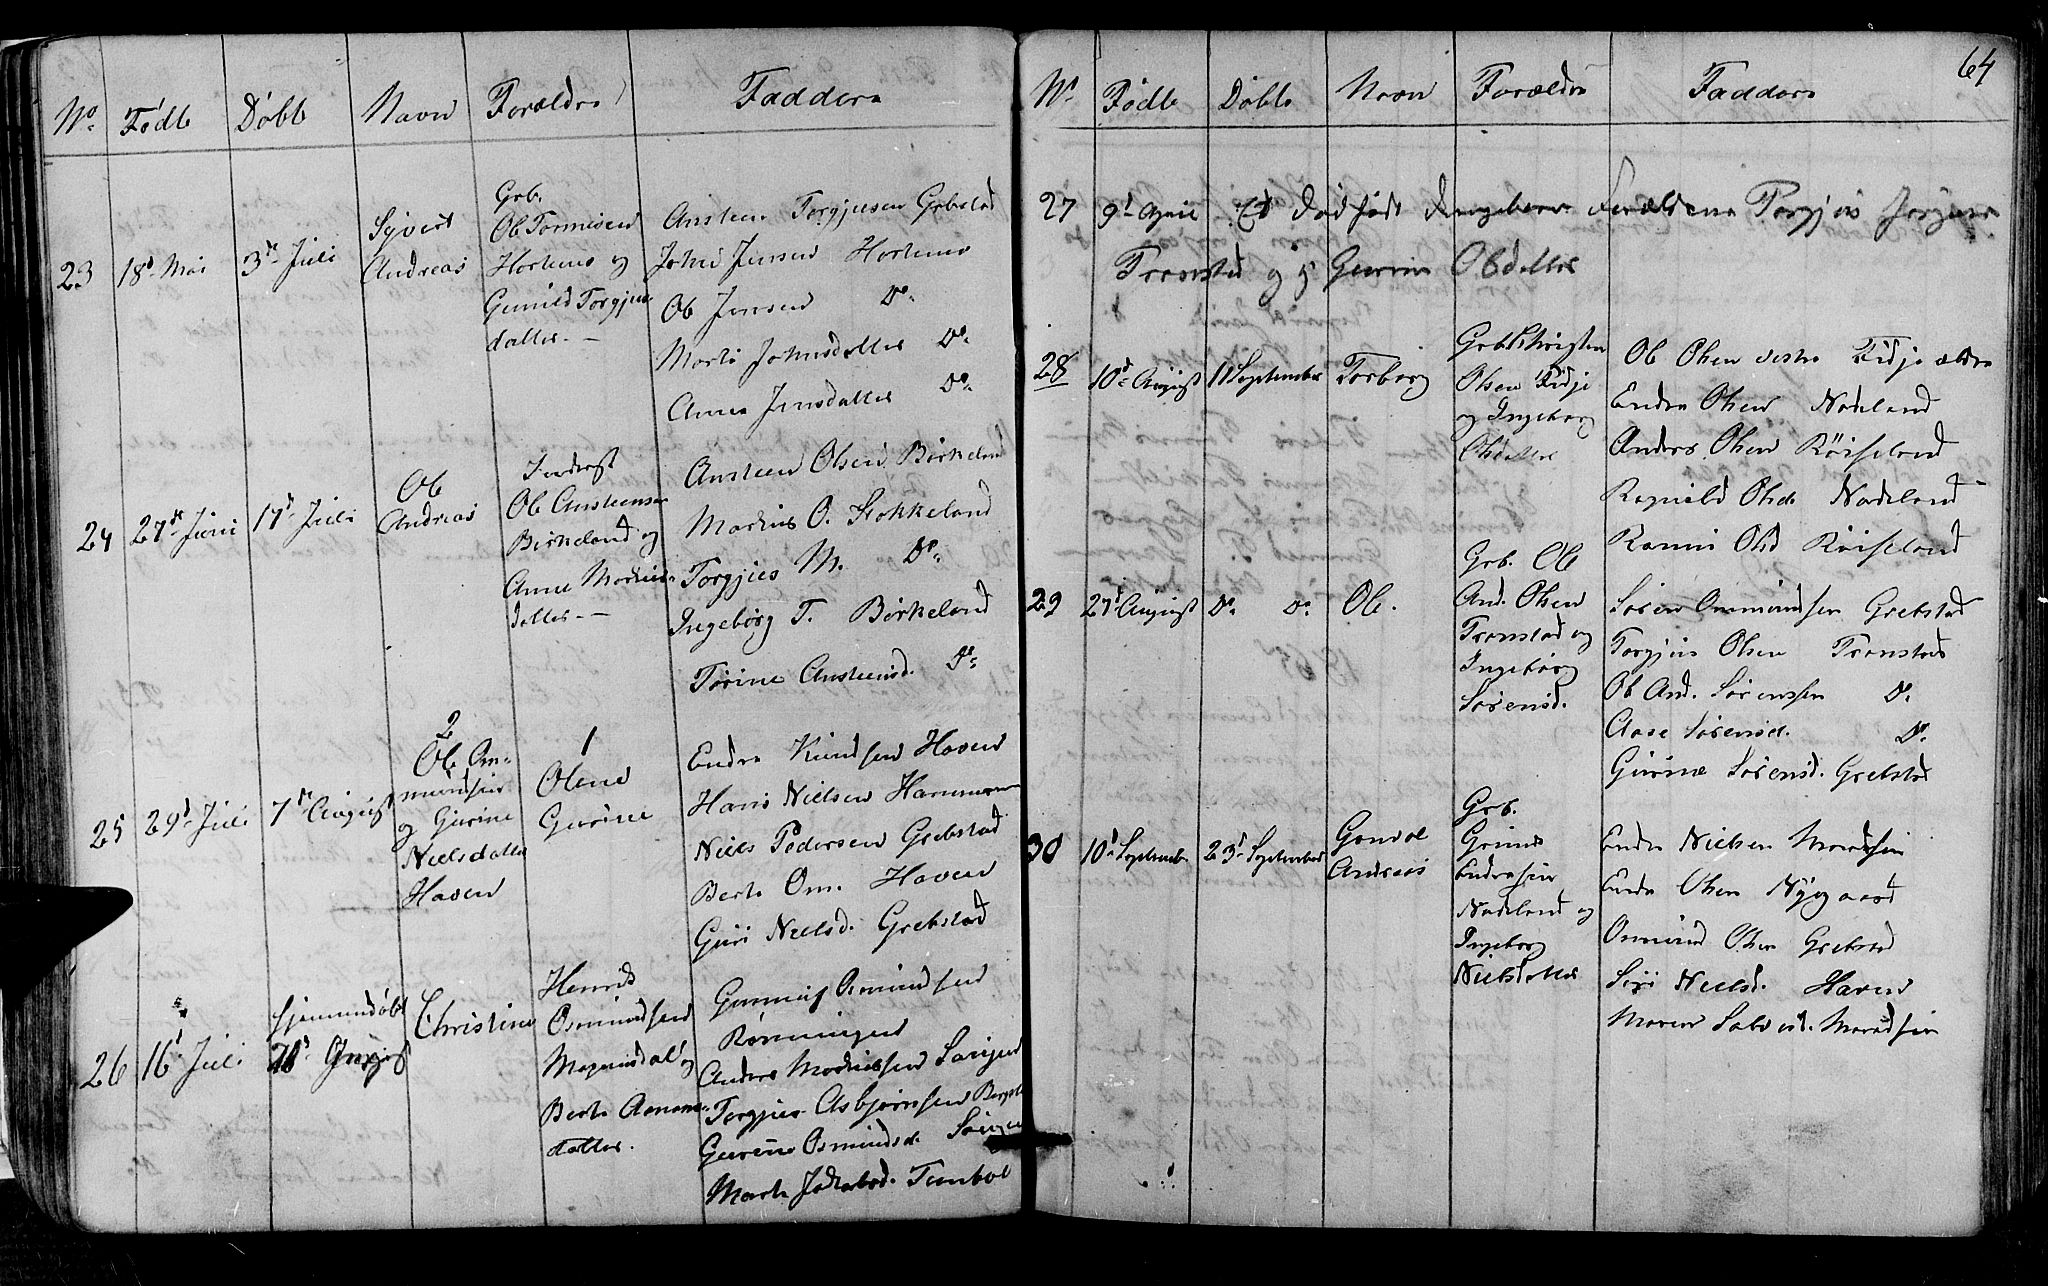 No Født Døbt Navn Forældre Faddere
23 18d Mai 3de Juli Syvert Andreas
Grb.
Ole Tormisen
Hortemo og
Gunild Torgjus-
datter. —
Ansteen Torgjusen Grbstad
John Jensen Hortemo
Ole Jensen Do.
Marte Johnsdatter Do.
Anne Jensdatter Do.
24 27de Juni 17d Juli Ole Andreas
Inderst
Ole Ansteensen
Birkeland og
Anne Markus-
datter —
Ansteen Olsen Birkeland
Markus O. Stokkeland
Torgjus M. Do.
Ingebørg T. Birkeland
Torine Ansteensd. Do.
25 29d Juli 7de August
2
Ole Om-
mundsen
og Gurine
Nielsdatter
Haven
1
Olene
Gurine
Endre Knudsen Haven
Hans Nielsen Hammeren
Niels Pedersen Grebstad
Berte Om. Haven
Guri Nielsd. Grebstad
26 16d Juli
hjemmedøbt
August
Christine
Henrik
Osmundsen
og
Berte Aanons-
datter.
Gunnuf Osmundsen
Rønningen
Anders Markussen
Torgjus Asbjørnsen
Gurine Osmundsd.
Marte Jakobsd.
64
No. Fødte Døbte Navn Forældre Faddere
27 9d April Et dødfødt Forældrene Torgjus
Tronstad og Gurine Olsdatter
28 10d August 11 September Torborg
Grb Christen
Olsen Kidje
og Ingeborg
Olsdatter
Ole Olsen vestre Kidje ældre
Endre Olsen Nodeland
Anders Olsen Røiseland
Ragnild Olsd. Nodeland
Olsd Røiseland
29 27d August Do. Do. Ole.
Grb. Ole
And. Olsen
Tronstad og
Ingebørg
Sørensd.
Søren Ommundsen Grebstad
Torgjus Olsen Tronstad
Ole And. Sørensen Do.
Aase Sørensd. Do.
Gurine Sørensd. Grebstad
30 10d September 23d September
Andreas
Grb.
Endresen
Nodeland og
Ingeborg
Nielsdatter
Endre Nielsen
Endre Olsen Nygaard
Ommund Olsen Grebstad
Siri Nielsd. Haven
Maren